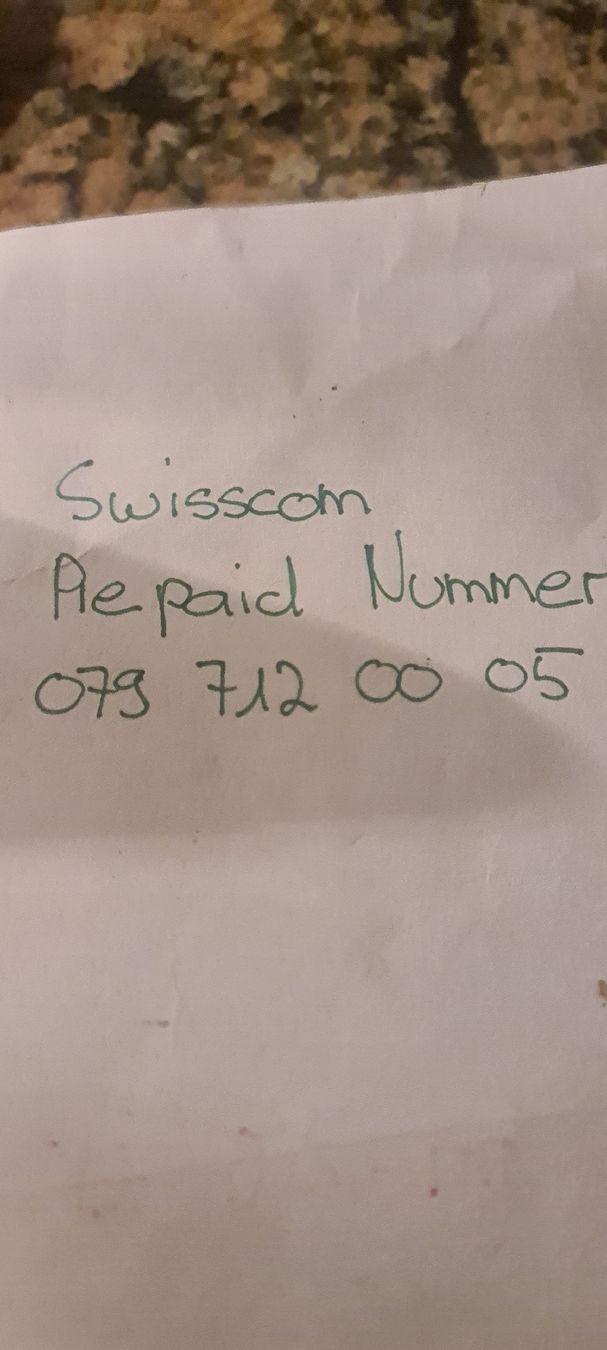 Swisscom
Prepaid Nummer
079 712 00 05